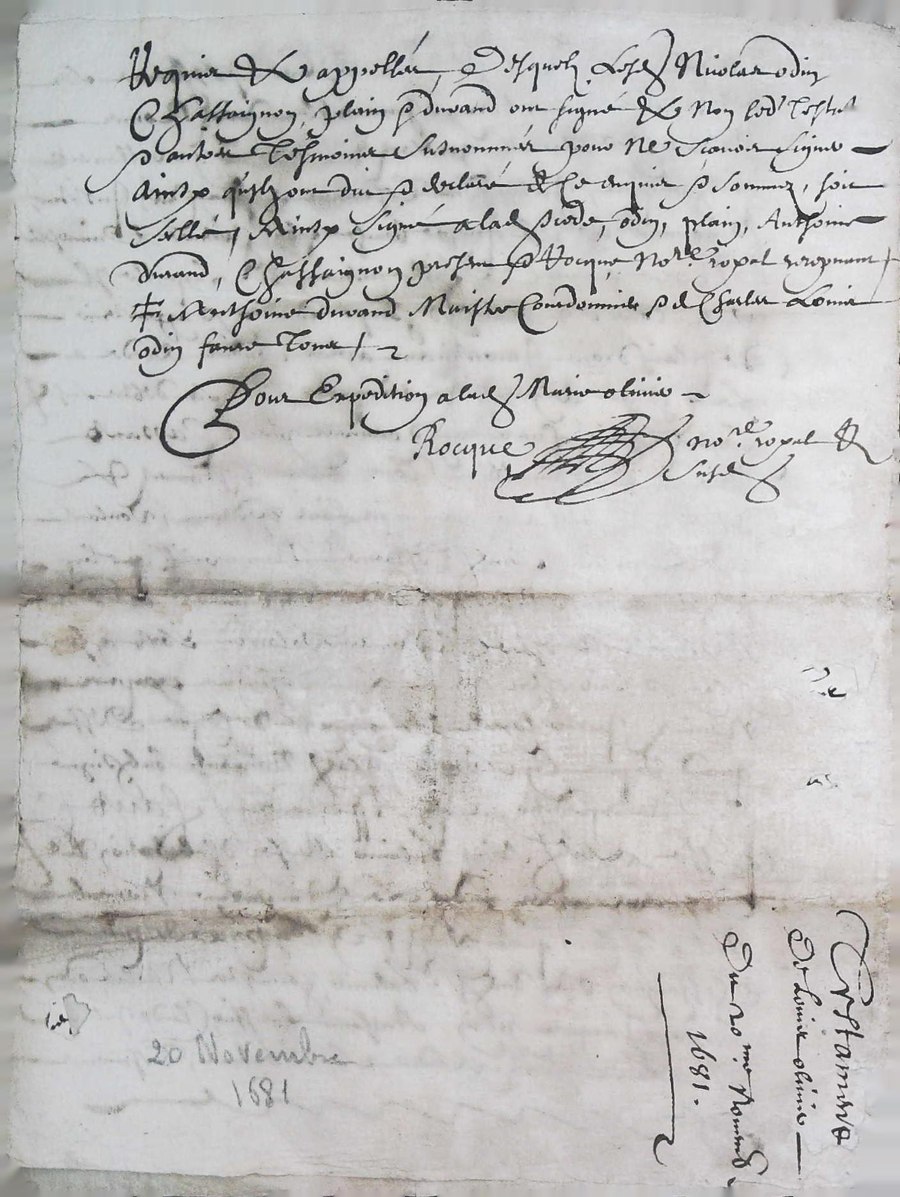 Requier & appellés, Desquelz Lesd Nicolas odin
Chassaignon, plain & durand ont signé & Non led testat
& autres tesmoins Susnommés pour Ne Scavoir Signer
Ainsy qu'ilz ont dit & declaré de ce enquis & Sommez, soit
Sellé, Ainsy Signé a la cede, odin, plain, Anthoine
durand, Chassaignon present & Rocque No.re royal
Anthoine durand Maistre Courdonnier & de Charles Louis
odin
Pour Expédition a lad Marie olivier
Rocque No.re royal
Susd
Testament
De Louis olivier
Du 20me Novemb
1681.
20 Novembre
1681